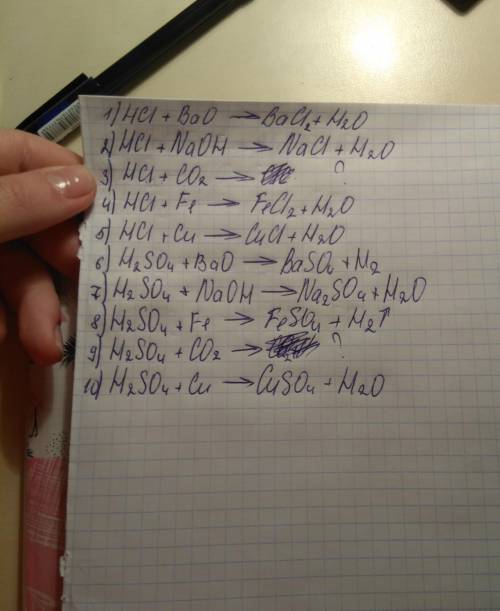 1) HCl + BaO → BaCl₂ + H₂O
2) HCl + NaOH → NaCl + H₂O
3) HCl + CO₂ → ?
4) HCl + Fe → FeCl₂ + H₂O
5) HCl + Cu → CuCl + H₂O
6) H₂SO₄ + BaO → BaSO₄ + H₂
7) H₂SO₄ + NaOH → Na₂SO₄ + H₂O
8) H₂SO₄ + Fe → FeSO₄ + H₂↑
9) H₂SO₄ + CO₂ → ?
10) H₂SO₄ + Cu → CuSO₄ + H₂O